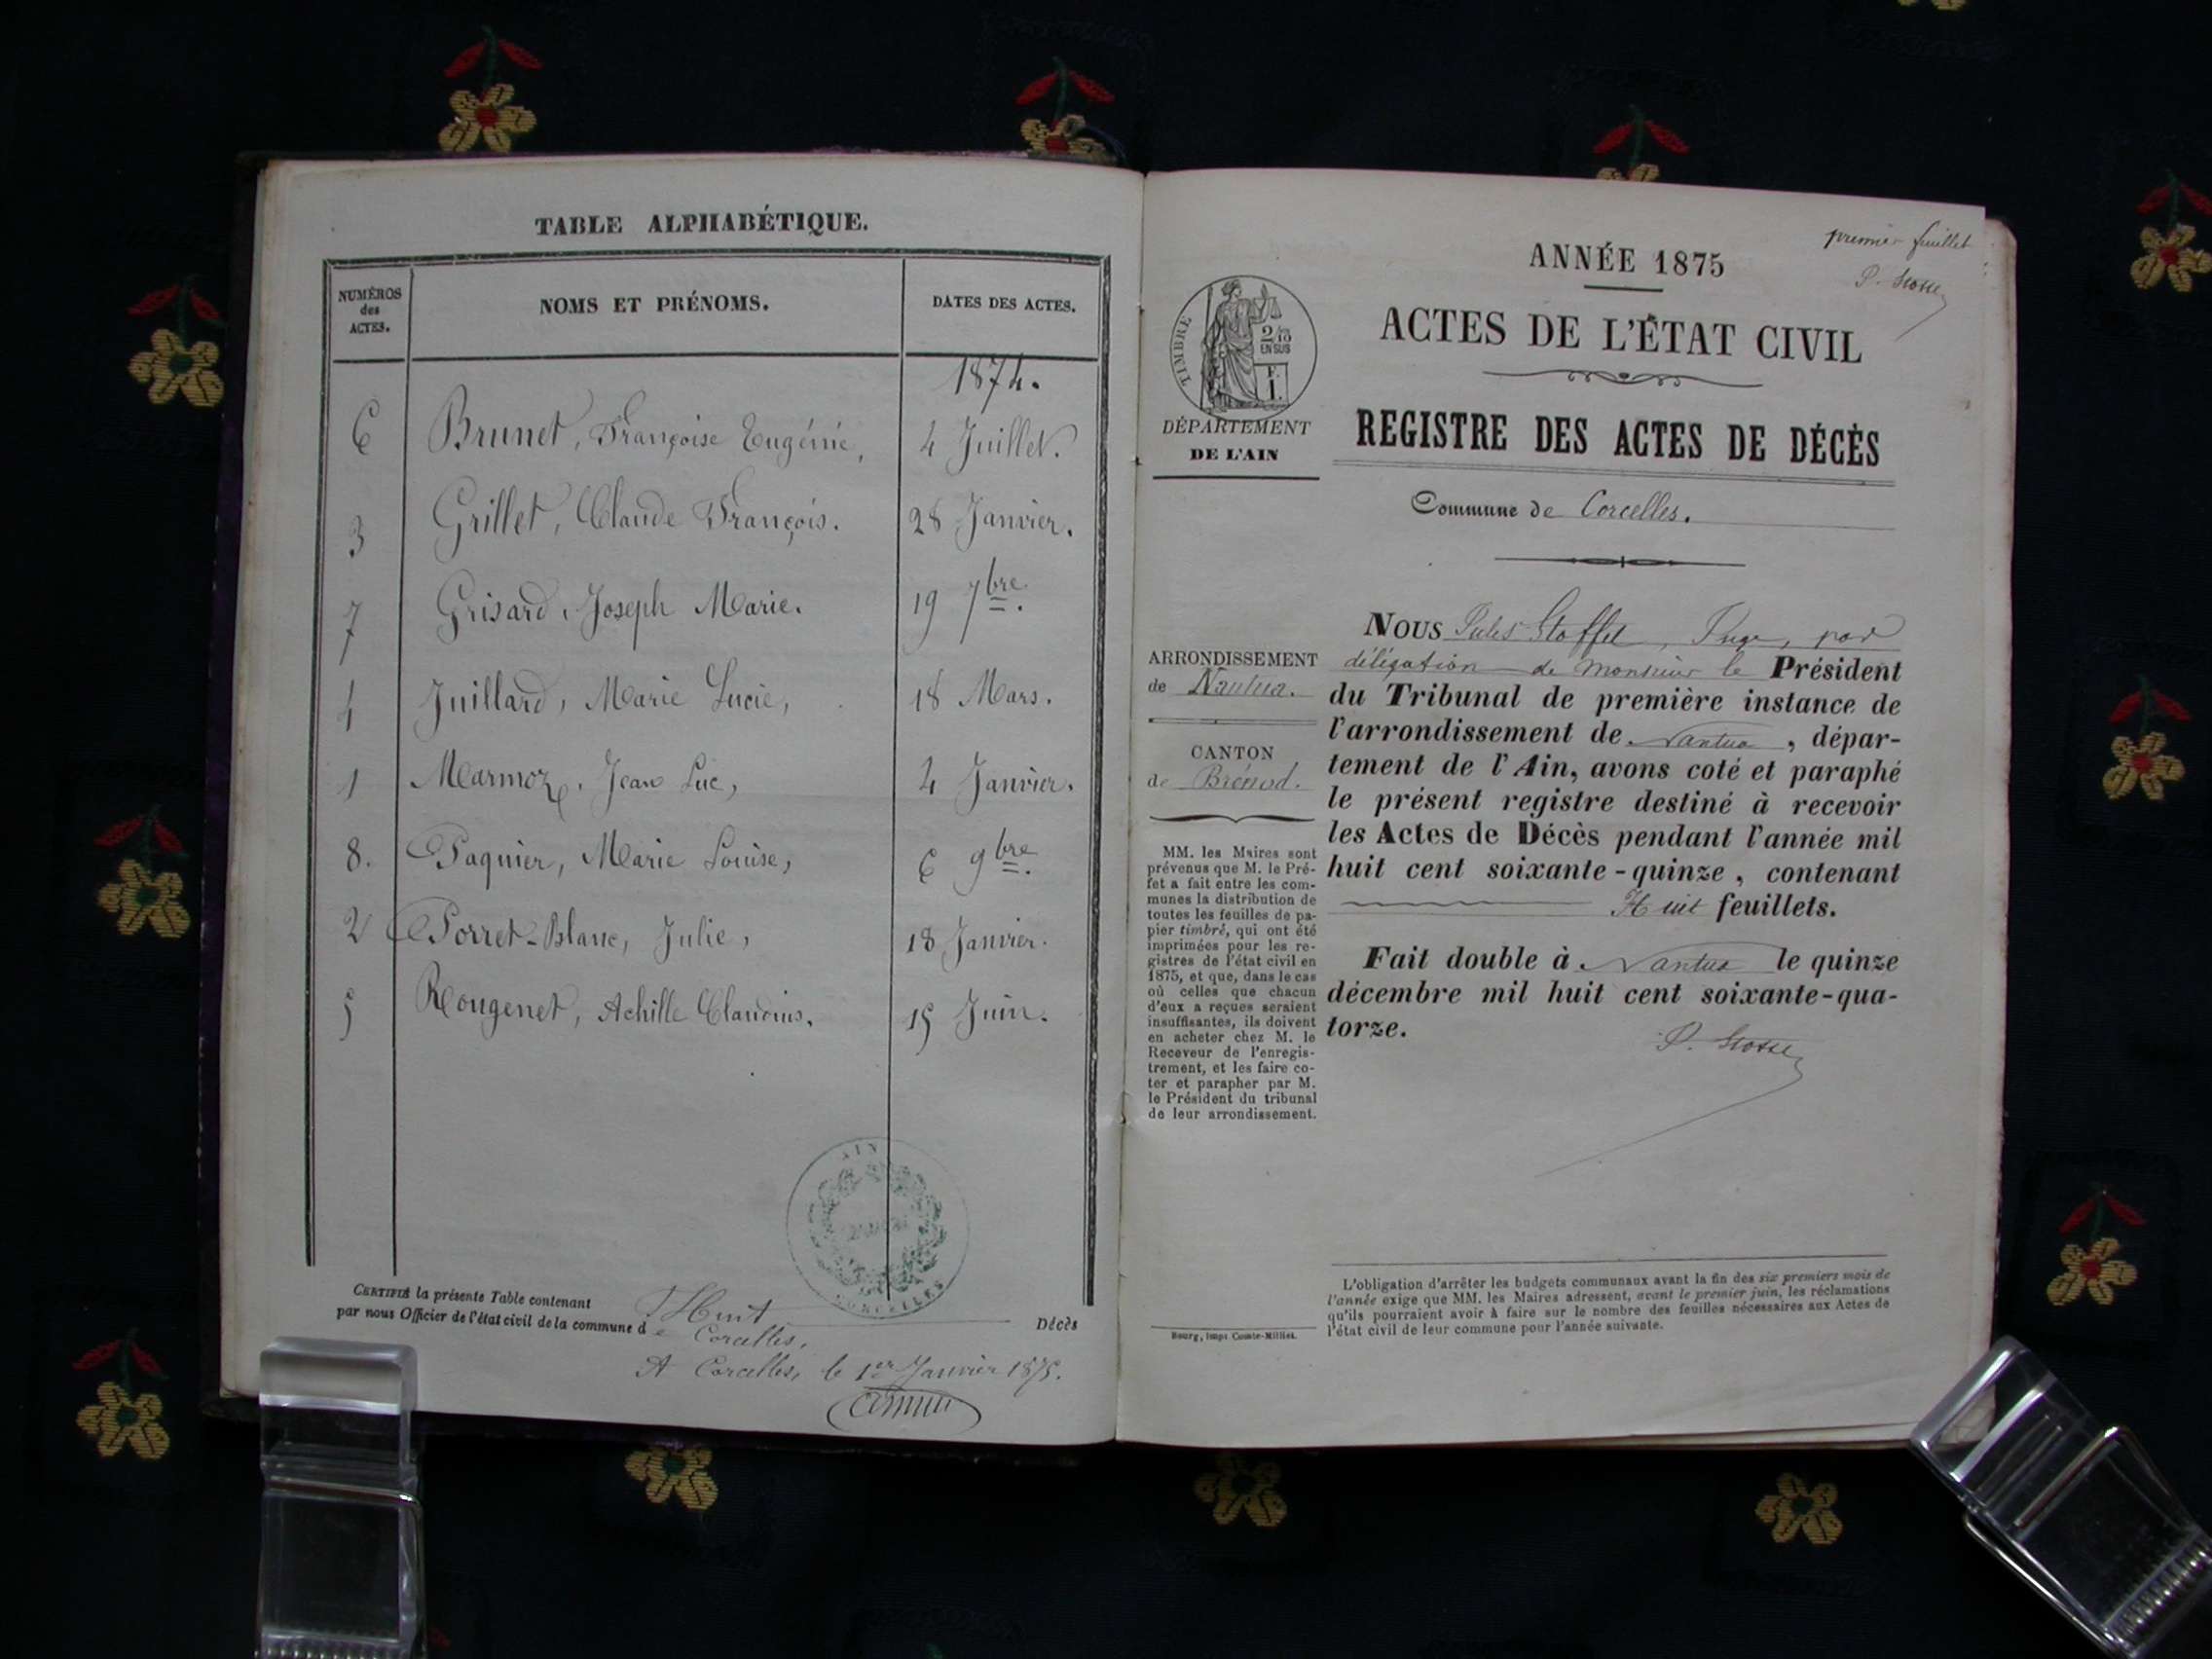 TABLE ALPHABÉTIQUE.
NUMÉROS des ACTES. NOMS ET PRÉNOMS. DATES DES ACTES.
1874.
6 Brunet, Françoise Eugénie, 4 Juillet.
3 Grillet, Claude François. 28 Janvier.
7 Grisard, Joseph Marie. 19 7bre.
4 Juillard, Marie Lucie, 18 Mars.
1 Marmoz, Jean Luc, 4 Janvier.
8. Paquier, Marie Louise, 6 9bre.
2 Porret-Blanc, Julie, 18 Janvier.
5 Rougenet, Achille Claudius. 15 Juin.
AIN
CORCELLES
CERTIFIÉ la présente Table contenant Huit Décès
par nous Officier de l'état civil de la commune de Corcelles,
A Corcelles, le 1er Janvier 1875.
premier feuillet
ANNÉE 1875
ACTES DE L'ÉTAT CIVIL
REGISTRE DES ACTES DE DÉCÈS
Commune de Corcelles.
TIMBRE
2/10
EN SUS
F.
1.
DÉPARTEMENT
DE L'AIN
ARRONDISSEMENT
de Nantua.
CANTON
de Brénod.
MM. les Maires sont
prévenus que M. le Pré-
fet a fait entre les com-
munes la distribution de
toutes les feuilles de pa-
pier timbré, qui ont été
imprimées pour les re-
gistres de l'état civil en
1875, et que, dans le cas
où celles que chacun
d'eux a reçues seraient
insuffisantes, ils doivent
en acheter chez M. le
Receveur de l'enregis-
trement, et les faire co-
ter et parapher par M.
le Président du tribunal
de leur arrondissement.
Bourg, Impr Comte-Milliet.
NOUS Jules Stoffel, Juge, par
délégation de Monsieur le Président
du Tribunal de première instance de
l'arrondissement de Nantua, dépar-
tement de l'Ain, avons coté et paraphé
le présent registre destiné à recevoir
les Actes de Décès pendant l'année mil
huit cent soixante-quinze, contenant
Huit feuillets.
Fait double à Nantua le quinze
décembre mil huit cent soixante-qua-
torze.
L'obligation d'arrêter les budgets communaux avant la fin des six premiers mois de
l'année exige que MM. les Maires adressent, avant le premier juin, les réclamations
qu'ils pourraient avoir à faire sur le nombre des feuilles nécessaires aux Actes de
l'état civil de leur commune pour l'année suivante.